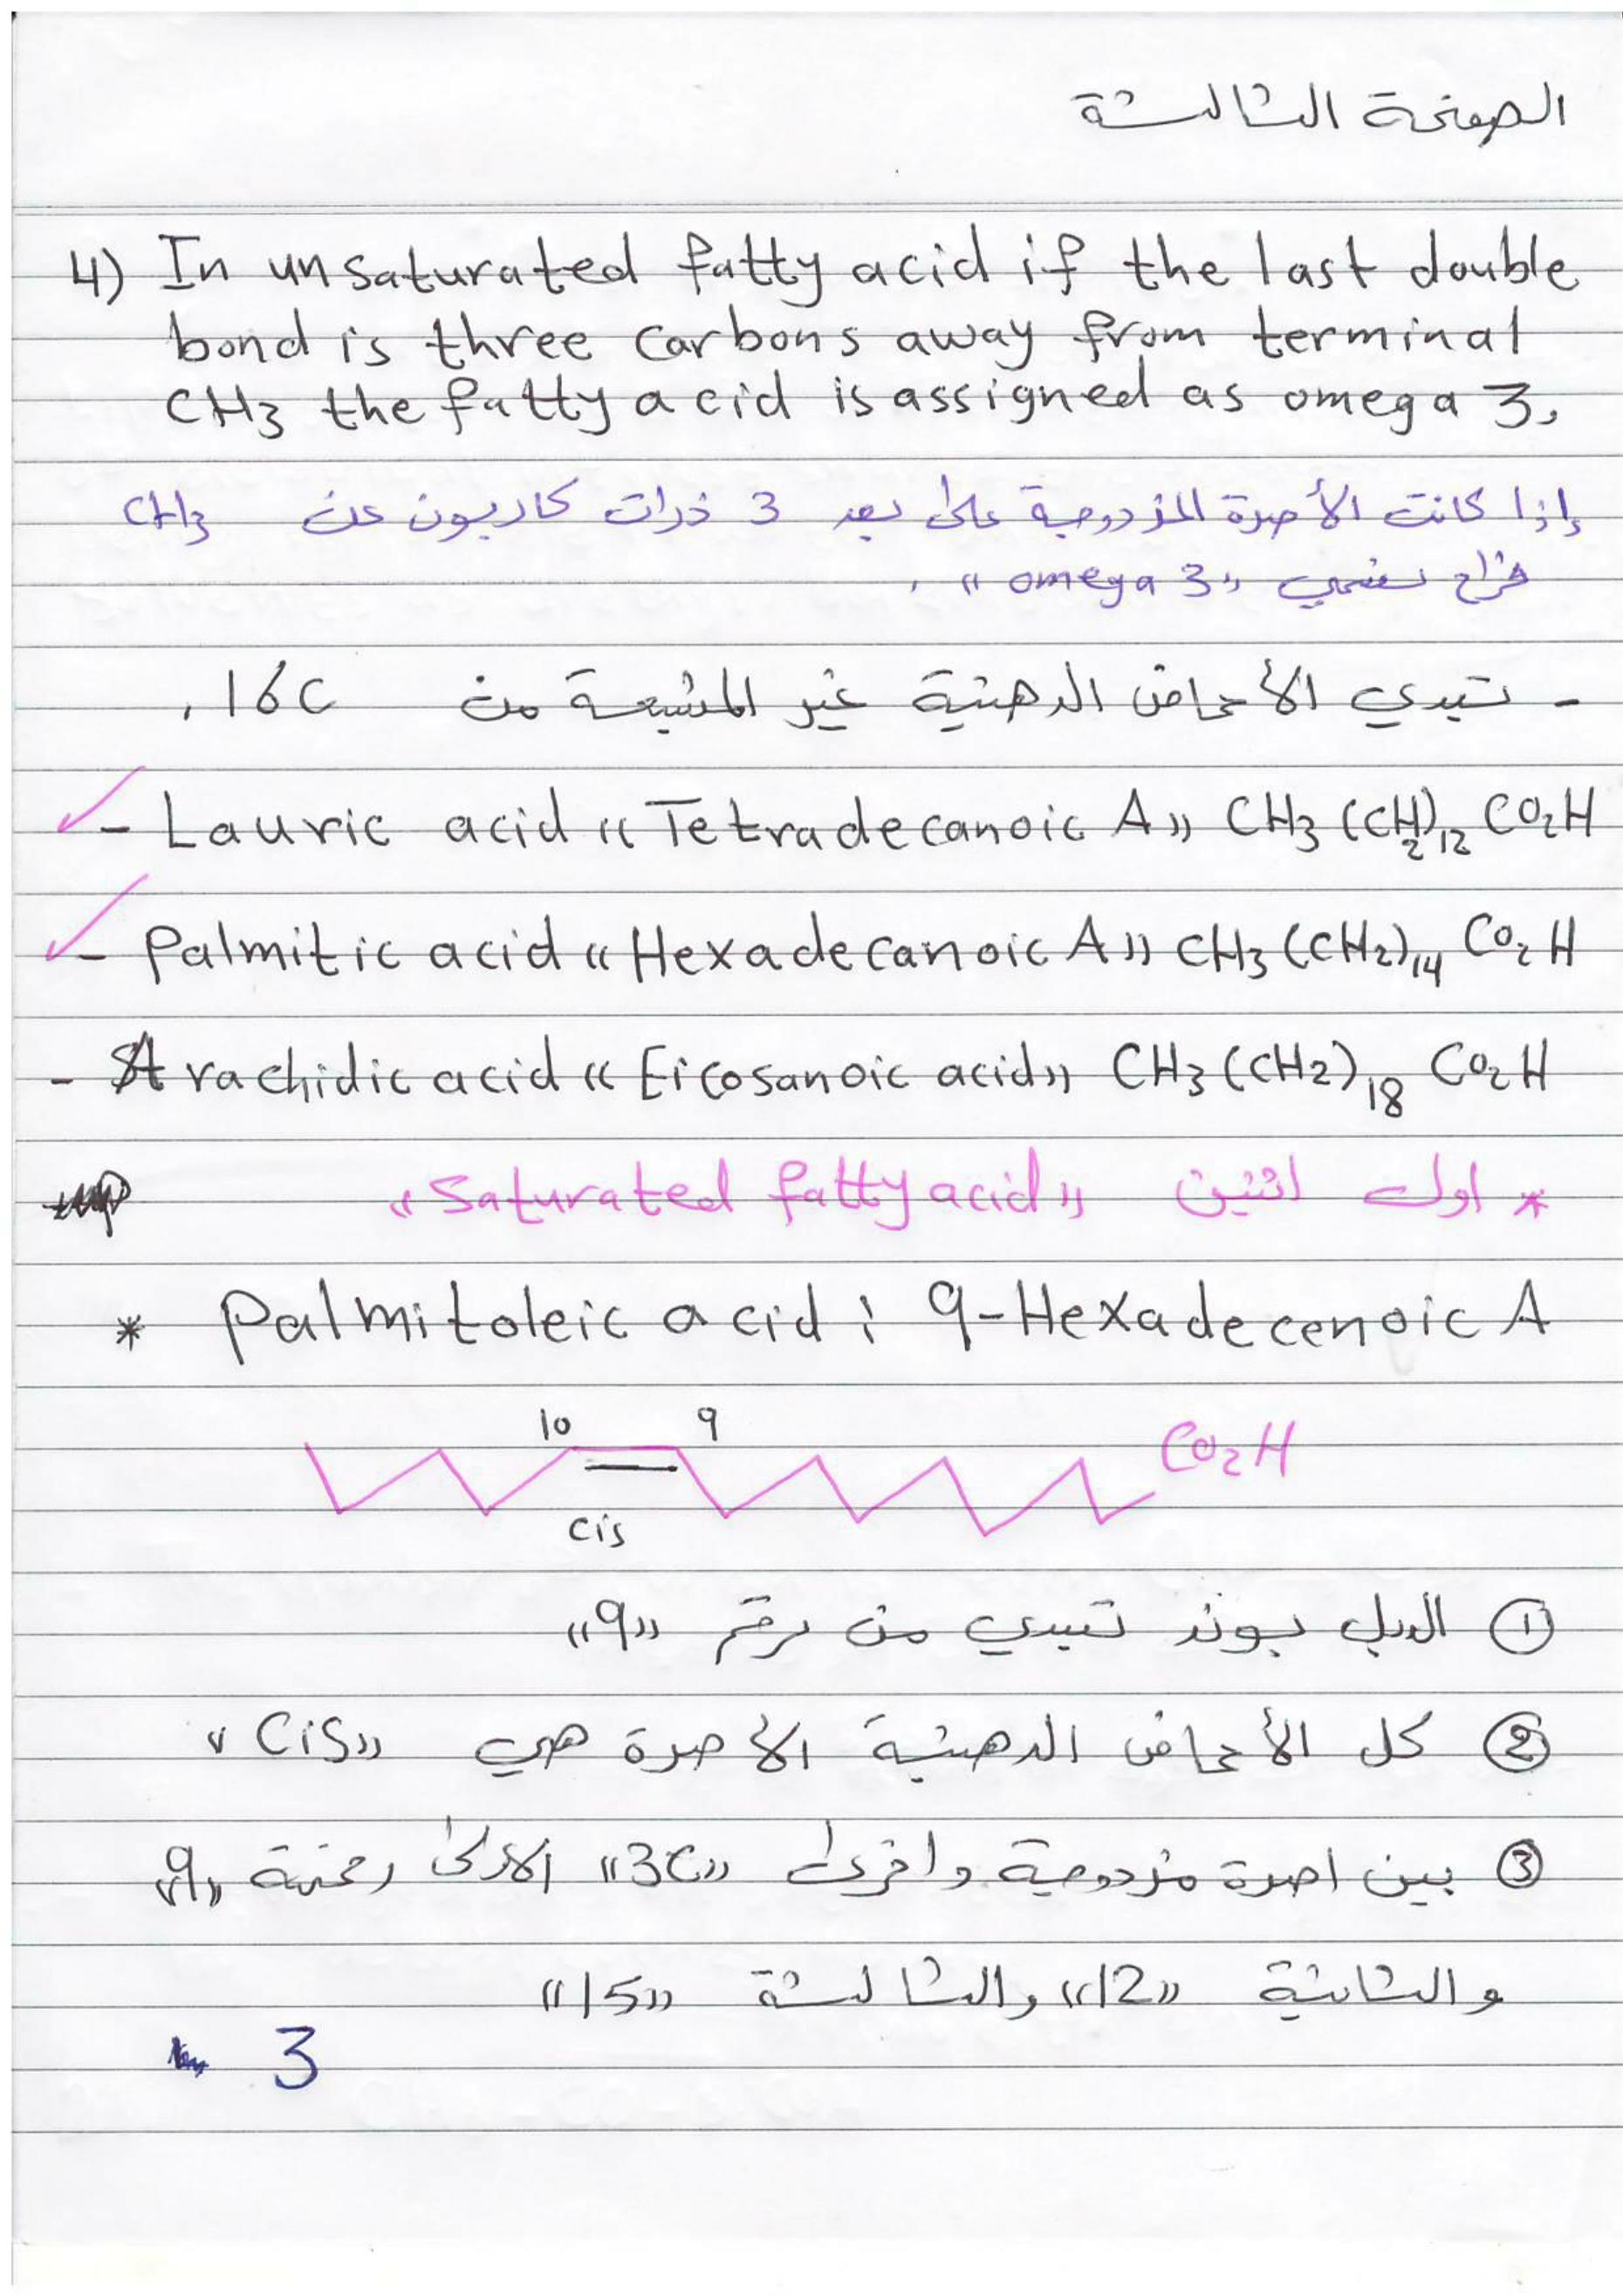 الصفحة الثالثة
4) In unsaturated fatty acid if the last double
bond is three carbons away from terminal
CH3 the fatty acid is assigned as omega 3.
إذا كانت الأصرة المزدوجة على بعد 3 ذرات كاربون عن CH3
فراح نسمي «omega 3» .
- تبدي الأحماض الدهنية غير المشبعة من 16C .
- Lauric acid «Tetradecanoic A» CH3 (CH2)12 CO2H
- Palmitic acid «Hexadecanoic A» CH3 (CH2)14 CO2H
- Arachidic acid «Eicosanoic acid» CH3 (CH2)18 CO2H
* اول اثنين «Saturated fatty acid»
* Palmitoleic acid : 9-Hexadecenoic A
10 9
CO2H
cis
① الدبل بوند تبدي من رقم «9»
② كل الأحماض الدهنية الاصرة هي «Cis»
③ بين اصرة مزدوجة واخرى «3C» الاولى «9»
والثانية «12» والثالثة «15»
3